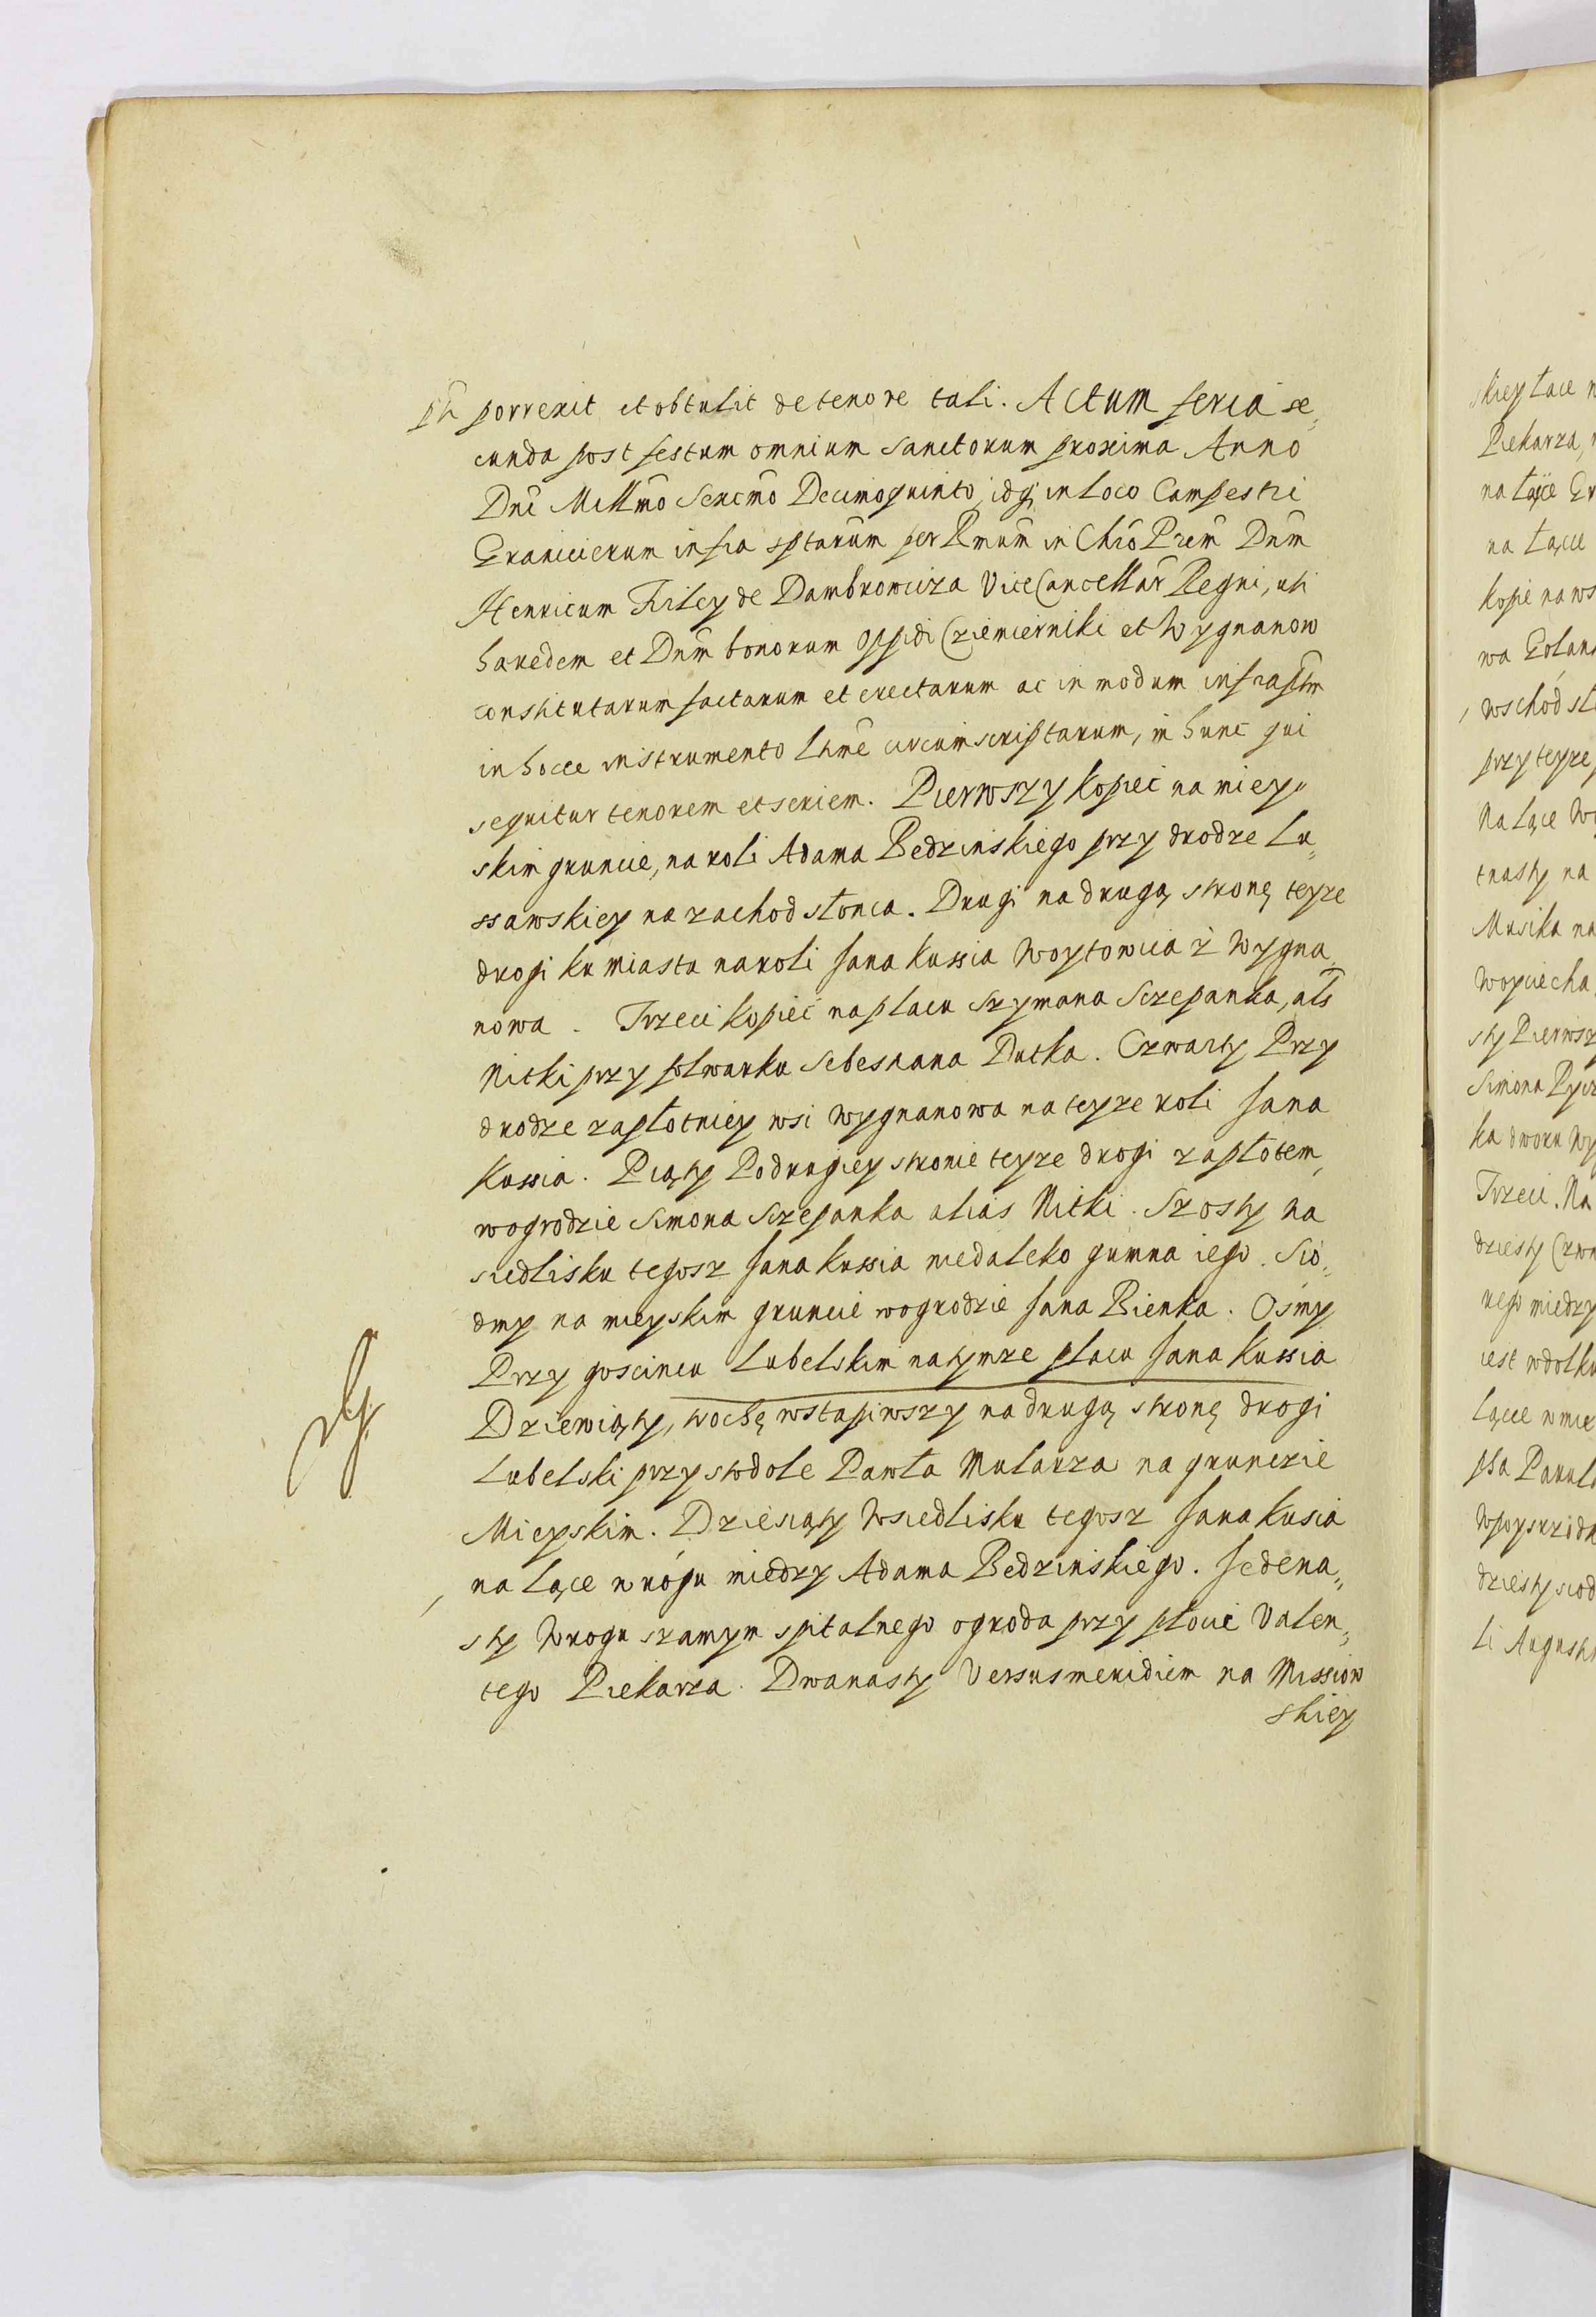 porrexit et obtulit de tenore tali. Actum feria se„
cunda post festum omnium Sanctorum proxima Anno
Dni Millmo Sexcmo Decimoquinto, idq; in Loco Campestri
Granicierum infra sptarum per Rmum in Chro Prem Dnm
Henricum Firley de Dambrowicza ViceCancellar Regni, uti
haredem et Dnm bonorum oppidi Cziemierniki et Wygnanow
constitutarum factarum et erectarum ac in modum infrasptm
in hocce instrumento Lhme circumscriptarum, in hunc qui
sequitur tenorem et seriem. Pierwszy kopiec na miey„
skim gruncie, na roli Adama Bedzinskiego przy drodze Lu„
ssawskiey na zachod słonca. Drugi na drugą stronę teyze
drogi ku miastu na roli Jana Kussia Woytowica z Wygna„
nowa. Trzeci kopiec na placu Szymona Sczepanka, als
Nitki przy folwarku Sebestiana Dutka. Czwarty Przy
drodze zapłotniey wsi Wygnanowa na teyze roli Jana
Kussia. Piąty Po drugiey stronie teyze drogi zapłotem,
w ogrodzie Simona Sczepanka alias Nitki. Szosty na
siedlisku tegosz Jana Kussia niedaleko gumna iego. Sio„
dmy na mieyskim gruncie w ogrodzie Jana Bienka. Osmy
Przy goscincu Lubelskim na tymze placu Jana Kussia
Dziewiąty, trochę wstąpiwszy na drugą stronę drogi
Lubelski przy stodole Pawła Mularza na grunczie
Mieyskim. Dziesiąty W siedlisku tegosz Jana Kusia
na Łące w rogu miedzy Adama Bedzinskiego. Jedena„
sty W rogu szamym spitalnego ogroda przy płocie Valen„
tego Piekarza. Dwanasty Versus meridiem na Mission
skiey
skiey Łące
Piekarza,
na Łące
na Łące
kopie na
wschod
przy teyze
Na Łące
tnasty na
Musika na
Woyciecha
sty Pierwsz
Simona
ka dworu
Trzeci. Na
dziesty
rego miedzy
iest w dołku
Łące
dziesty siod
li